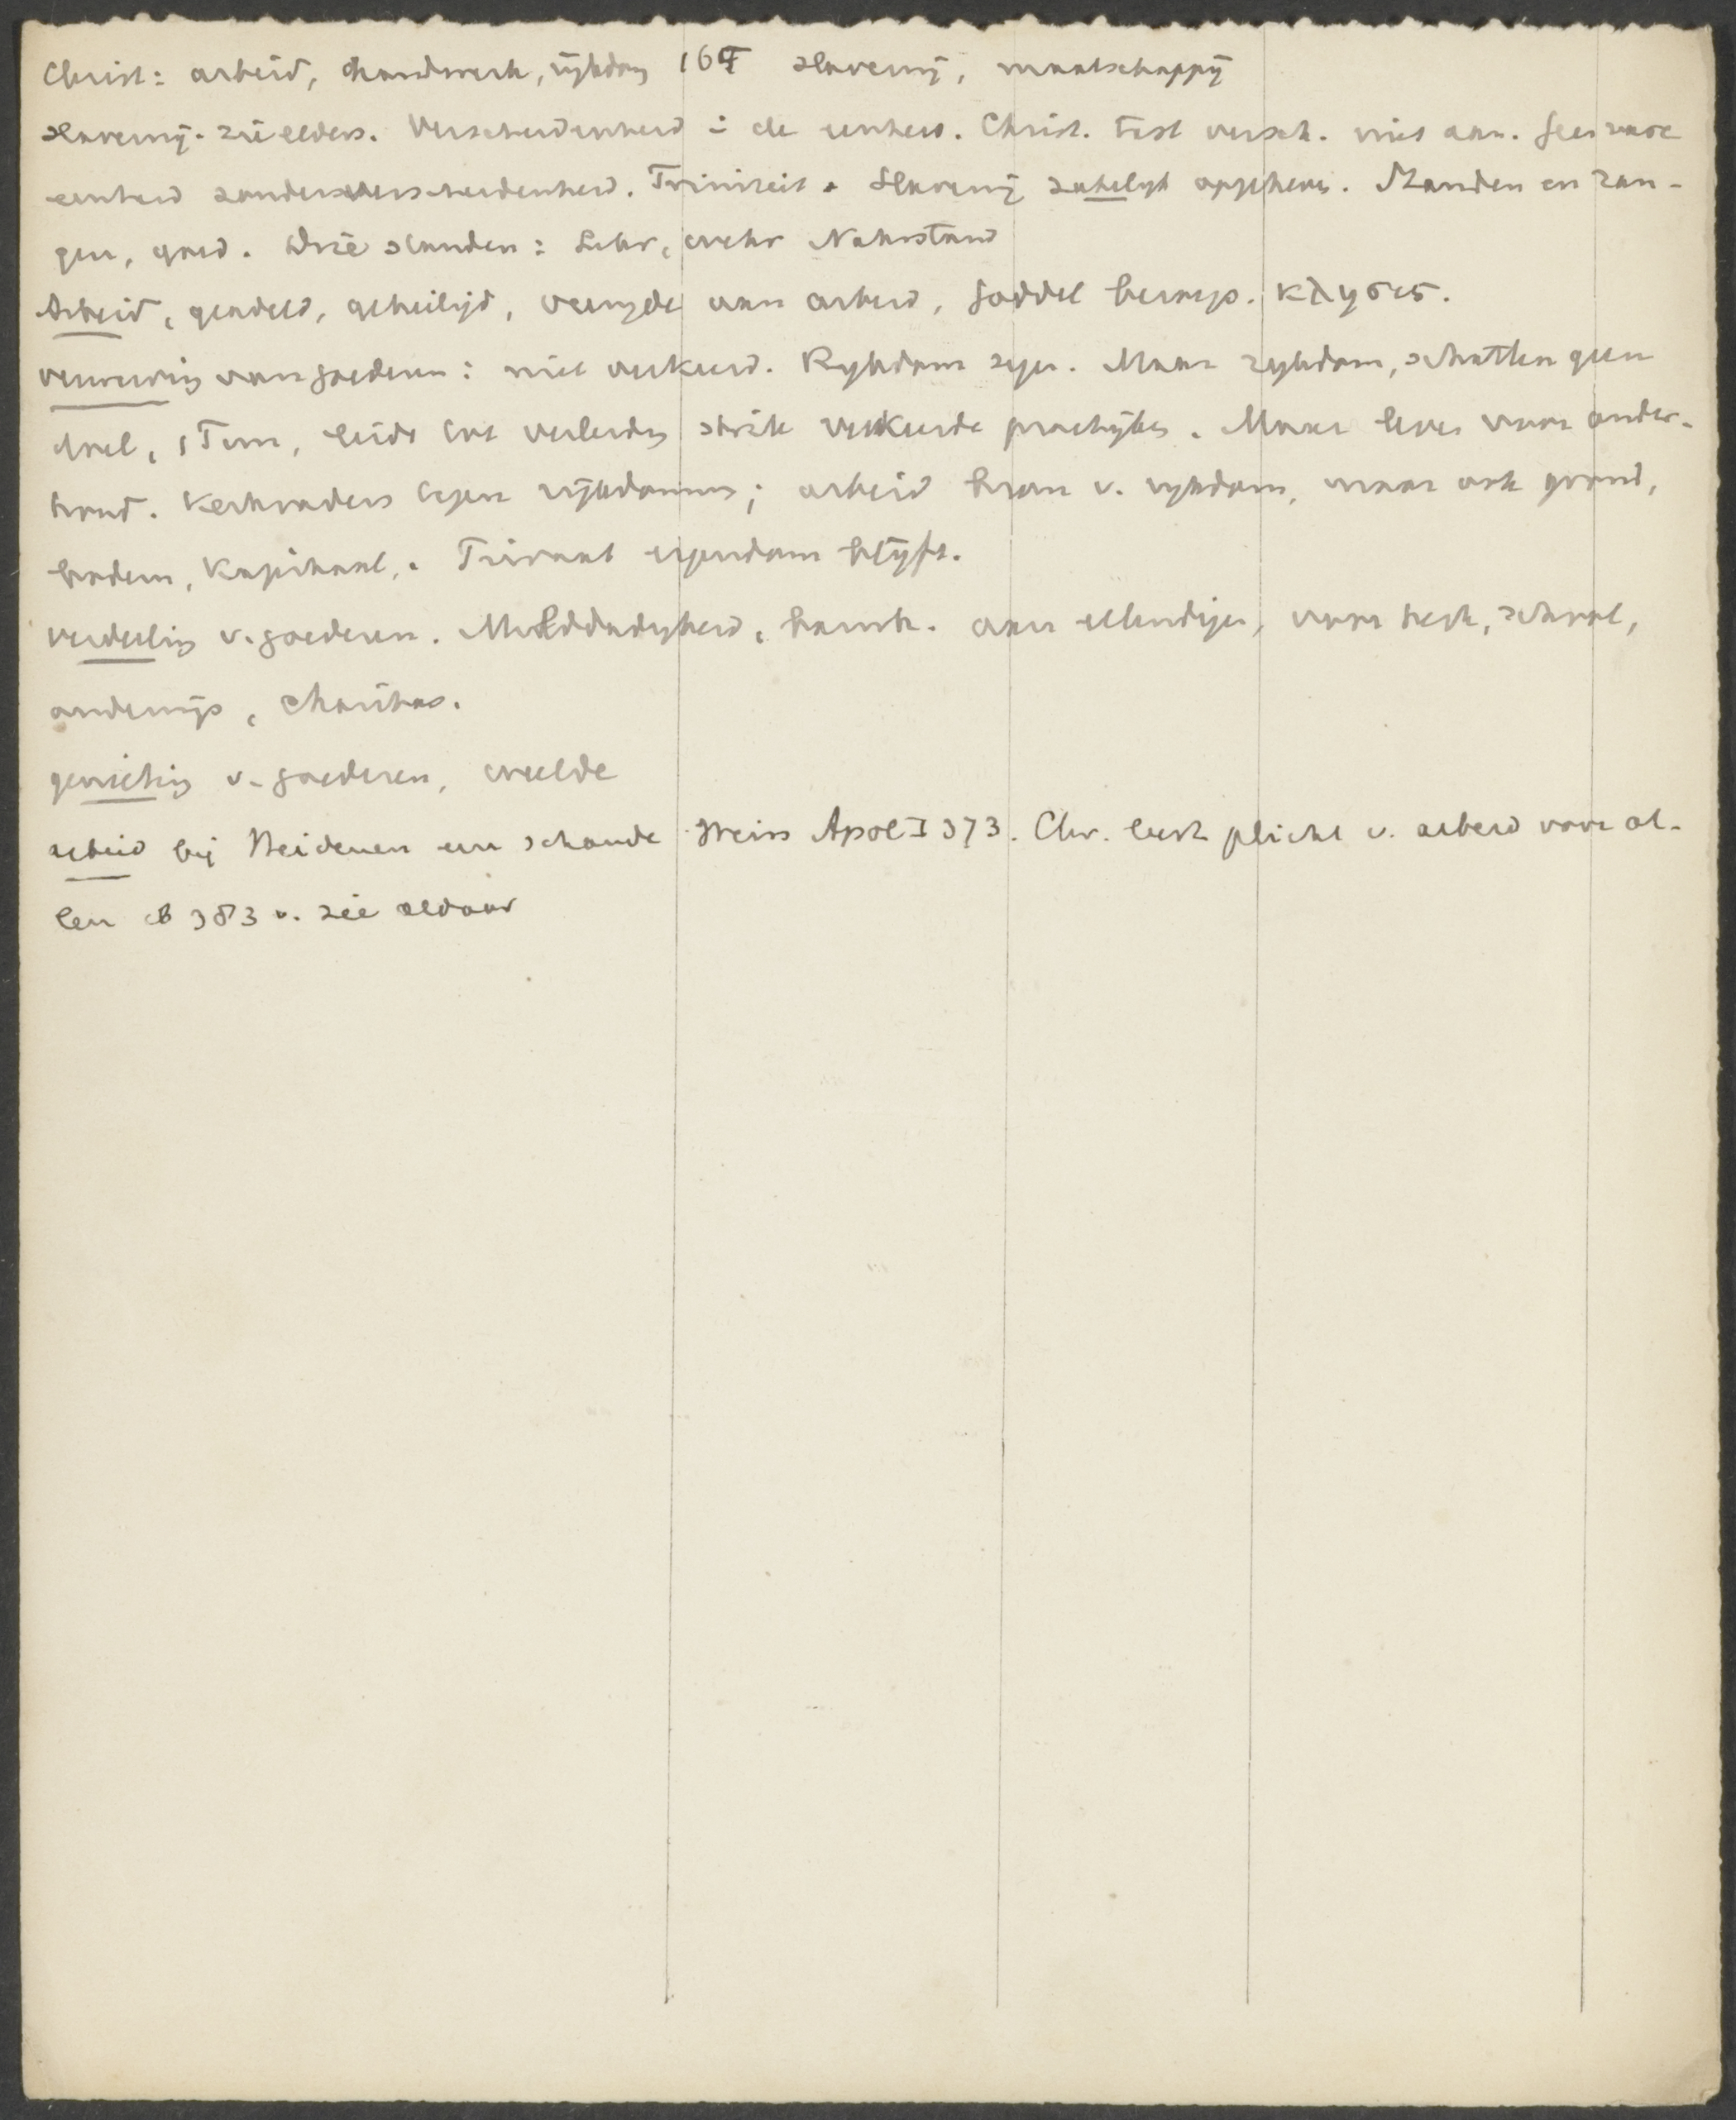 Christ: arbeid, handwerk, rijkdom 167 slavernij, maatschappij
slavernij. zie elders. Verscheidenheid : de eenheid. Christ. tast versch. niet aan. Geen ware
eenheid zonder verscheidenheid. Triniteit. Slavernij zakelijk opgeheven. Standen en ran-
gen, goed. Drie standen: Lehr, wehr Nahrstand
Arbeid, geadeld, geheiligd, vreugde aan arbeid, goddel beroep. κλησις.
verwerving van goederen: niet verkeerd. Rijkdom zegen. Maar rijkdom, schatten geen
doel, 1 Tim, leidt tot verleiding strik verkeerde praktijken. Maar liever voor onder-
houd. Kerkvaders tegen rijkdommen; arbeid bron v. rijkdom, maar ook grond,
bodem, Kapitaal. Privaat eigendom blijft.
verdeeling v. goederen. Milddadigheid, barmh. aan ellendigen, voor kerk, school,
onderwijs, charitas.
genieting v. goederen, weelde
arbeid bij Heidenen een schande Weiss Apol I 373. Chr. leert plicht v. arbeid voor al-
len ib 383 v. zie aldaar